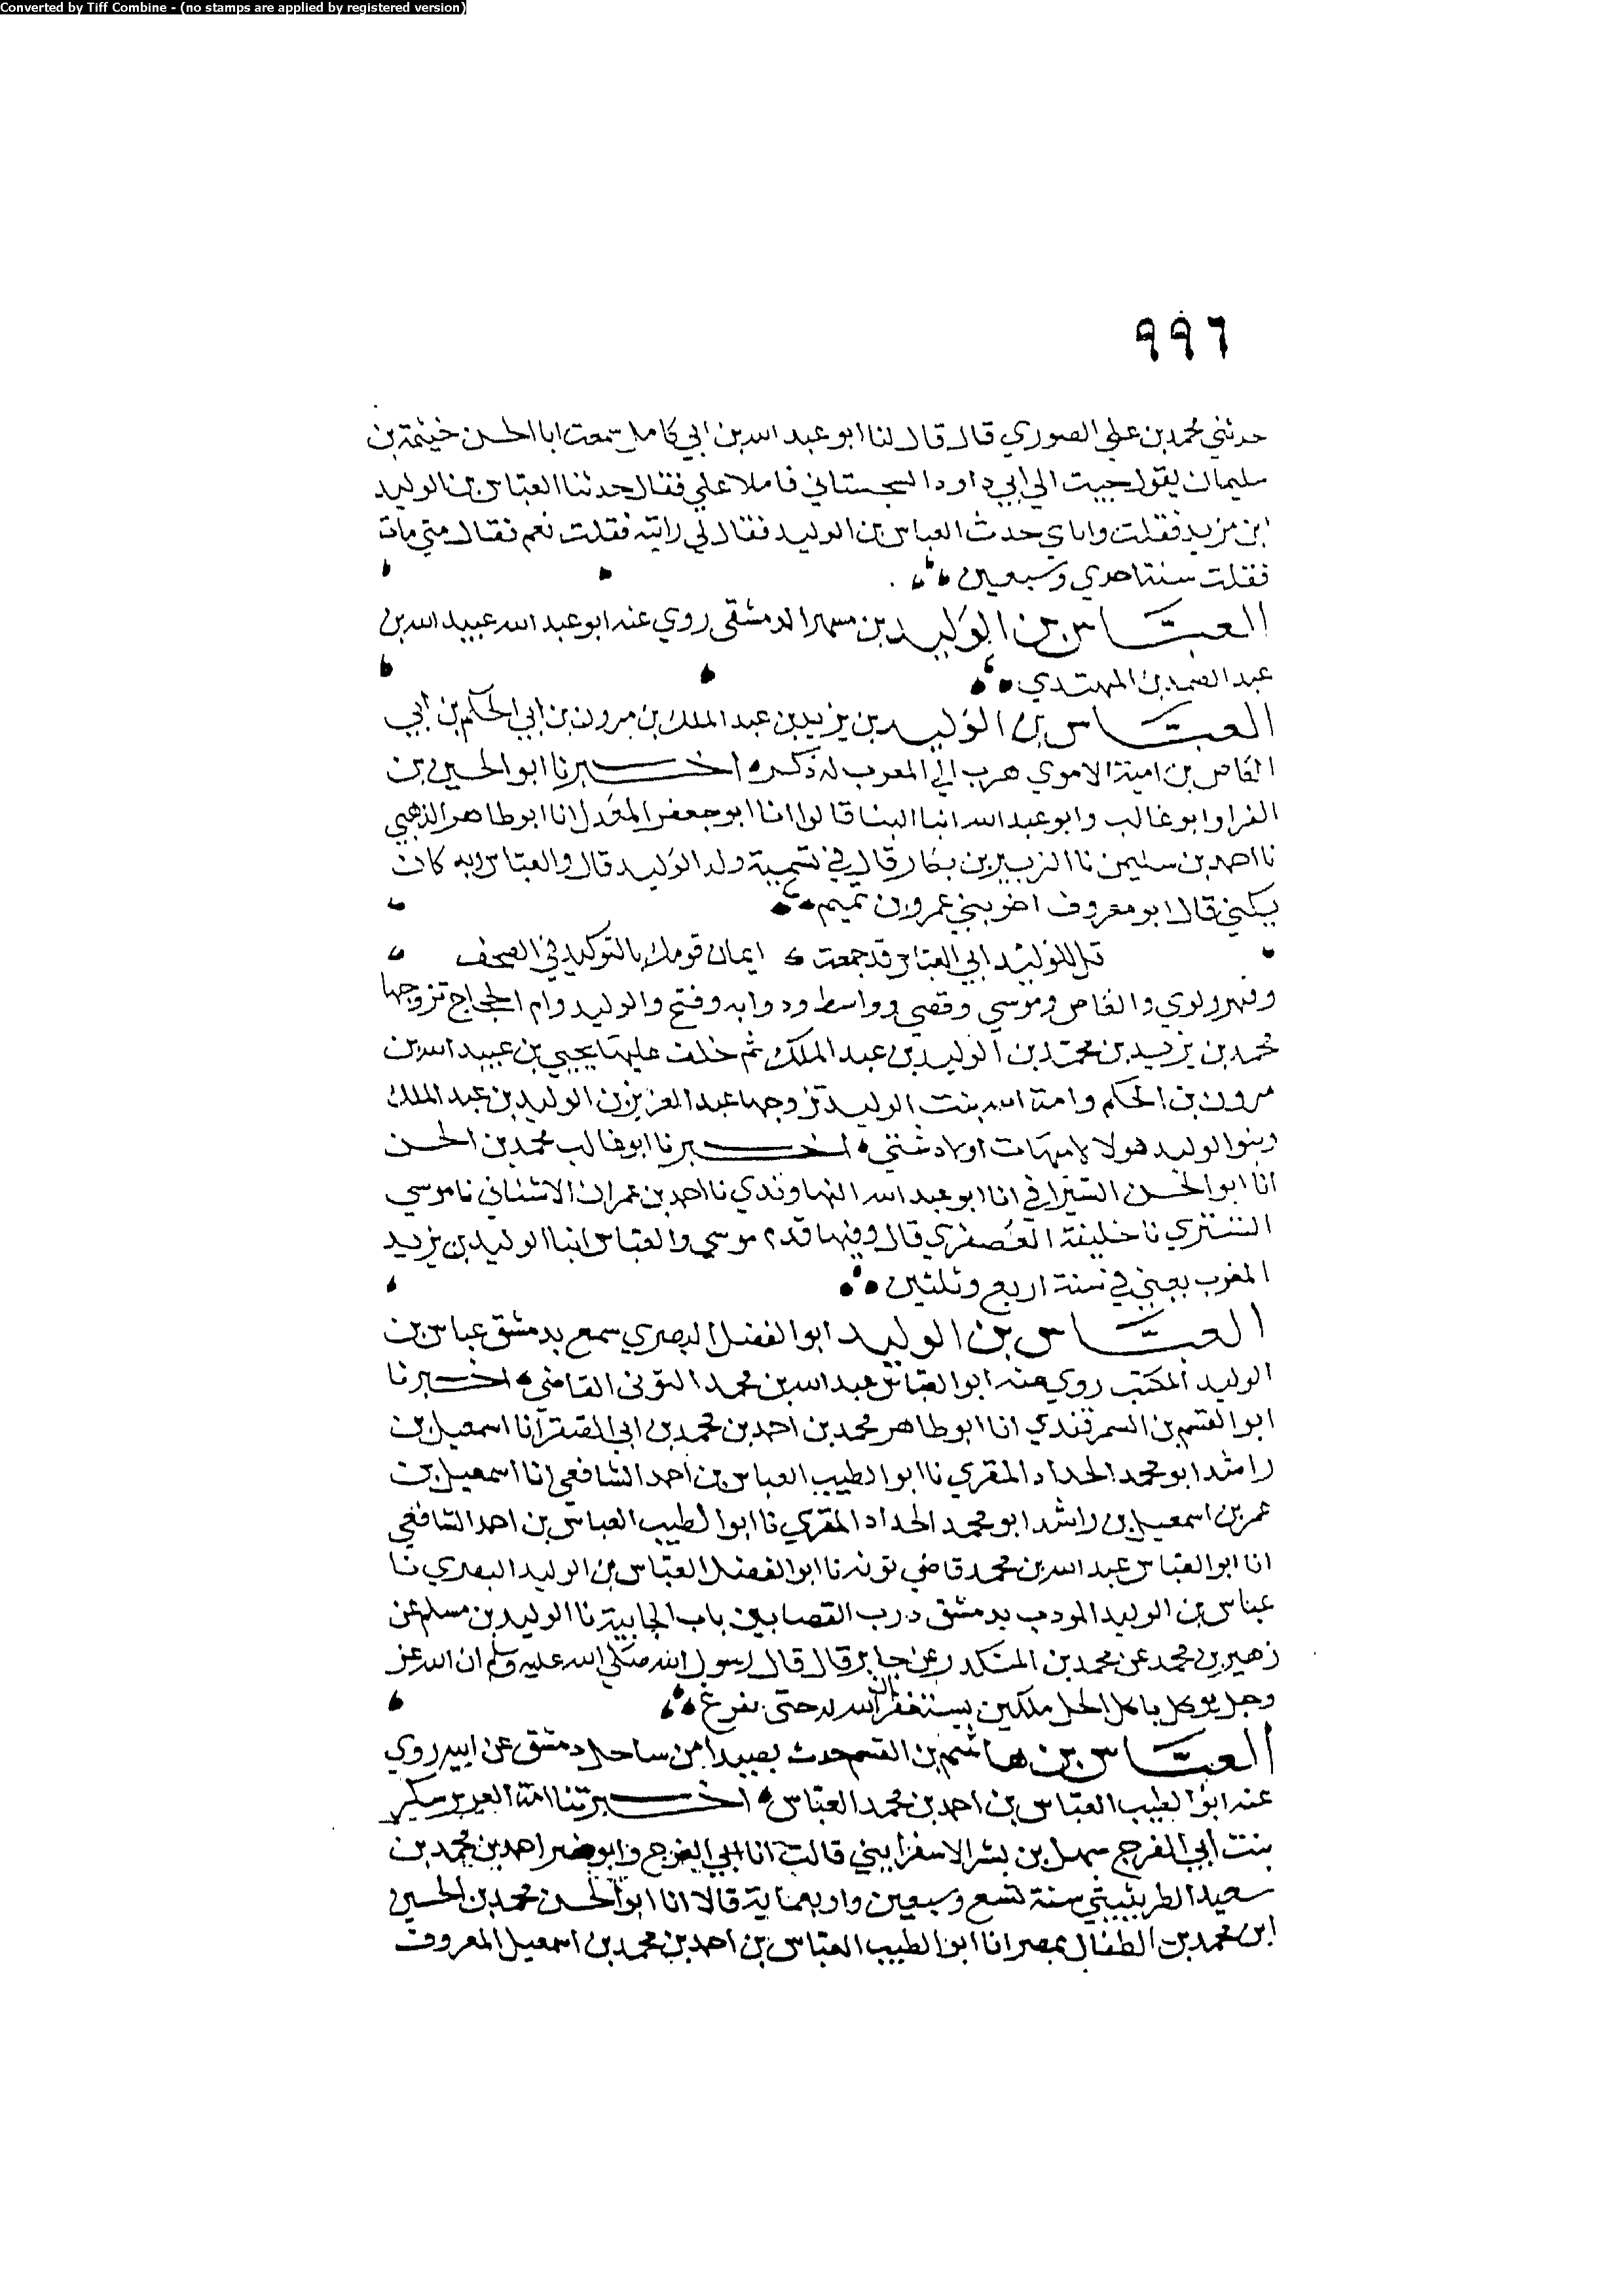 Converted by Tiff Combine - (no stamps are applied by registered version)
٩٩٦
حدثني محمد بن علي الصوري قال قال لنا ابو عبد الله بن ابي كامل سمعت ابا الحسن خيثمة بن
سليمان يقول جيت الي ابي داود السجستاني فاملا علي فقال حدثنا العباس بن الوليد
ابن مزيد فقلت واياي حدث العباس بن الوليد فقال لي رايته فقلت نعم فقال متي مات
فقلت سنة احدي وسبعين
العباس بن الوليد بن مسهر الدمشقي روي عنه ابو عبد الله عبيد الله بن
عبد الصمد بن المهتدي
العباس بن الوليد بن يزيد بن عبد الملك بن مرون بن ابي الحكم بن ابي
العاص بن امية الاموي هرب الي المغرب له ذكر اخبرنا ابو الحسين بن
الفرا وابو غالب وابو عبد الله ابنا البنا قالوا انا ابو جعفر المعدل انا ابو طاهر الذهبي
نا احمد بن سليمن نا الزبير بن بكار قال في تسمية ولد الوليد قال والعباس وبه كان
يكني قال ابو معروف اخو بني عمرو بن تميم
قل للوليد ابي العباس قد جمعت ايمان قومك بالتوكيد في الصحف
وفهر ولوي والعاص وموسي وقصي وواسط ودوابه وفتح والوليد وام الحجاج تزوجها
محمد بن يزيد بن محمد بن الوليد بن عبد الملك ثم خلف عليها يحيي بن عبيد الله بن
مرون بن الحكم وامة الله بنت الوليد تزوجها عبد العزيز بن الوليد بن عبد الملك
وبنو الوليد هولا لامهات اولاد شتي اخبرنا ابو غالب محمد بن الحسن
انا ابو الحسن السيرافي انا ابو عبد الله النهاوندي نا احمد بن عمران الاشناني نا موسي
التستري نا خليفة العصفري قال وفيها قدم موسي والعباس ابنا الوليد بن يزيد
المغرب يعني في سنة اربع وثلثين
العباس بن الوليد ابو الفضل البصري سمع بدمشق عباس بن
الوليد المكتب روي عنه ابو العباس عبد الله بن محمد التوني القاضي اخبرنا
ابو القسم بن السمرقندي انا ابو طاهر محمد بن احمد بن محمد بن ابي الصقر انا اسمعيل بن
راشد ابو محمد الحداد المقري نا ابو الطيب العباس بن احمد الشافعي انا اسمعيل بن
عمر بن اسمعيل بن راشد ابو محمد الحداد المقري نا ابو الطيب العباس بن احمد الشافعي
انا ابو العباس عبد الله بن محمد قاضي تونه نا ابو الفضل العباس بن الوليد البصري نا
عباس بن الوليد المودب بدمشق درب القصابين باب الجابية نا الوليد بن مسلم عن
زهير بن محمد عن محمد بن المنكدر عن جابر قال قال رسول الله صلي الله عليه وسلم ان الله عز
وجل يوكل باكل الخل ملكين يستغفران الله له حتي يفرغ
العباس بن هاشم بن القسم حدث بصيدا من ساحل دمشق عن ابيه روي
عنه ابو الطيب العباس بن احمد بن محمد العباس اخبرتنا امة العزيز سكير
بنت ابي الفرج سهل بن بشر الاسفرايني قالت انا ابي ابو الفرج وابو نصر احمد بن محمد بن
سعيد الطريثيثي سنة تسع وسبعين واربعماية قالا انا ابو الحسن محمد بن الحسين
ابن محمد بن الطفال بمصر انا ابو الطيب العباس بن احمد بن محمد بن اسمعيل المعروف